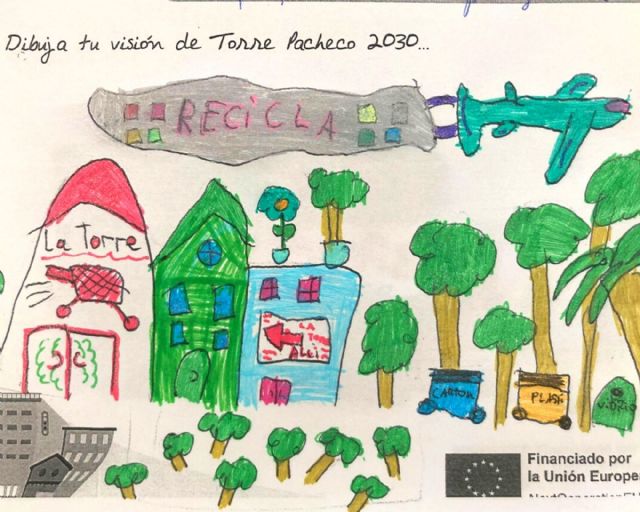 Dibuja tu visión de Torre Pacheco 2030...
RECiCLA
La Torre
LA
CARTÓN
PLASt
ViDRio
Financiado por
la Unión Europe
NextGenerationEU